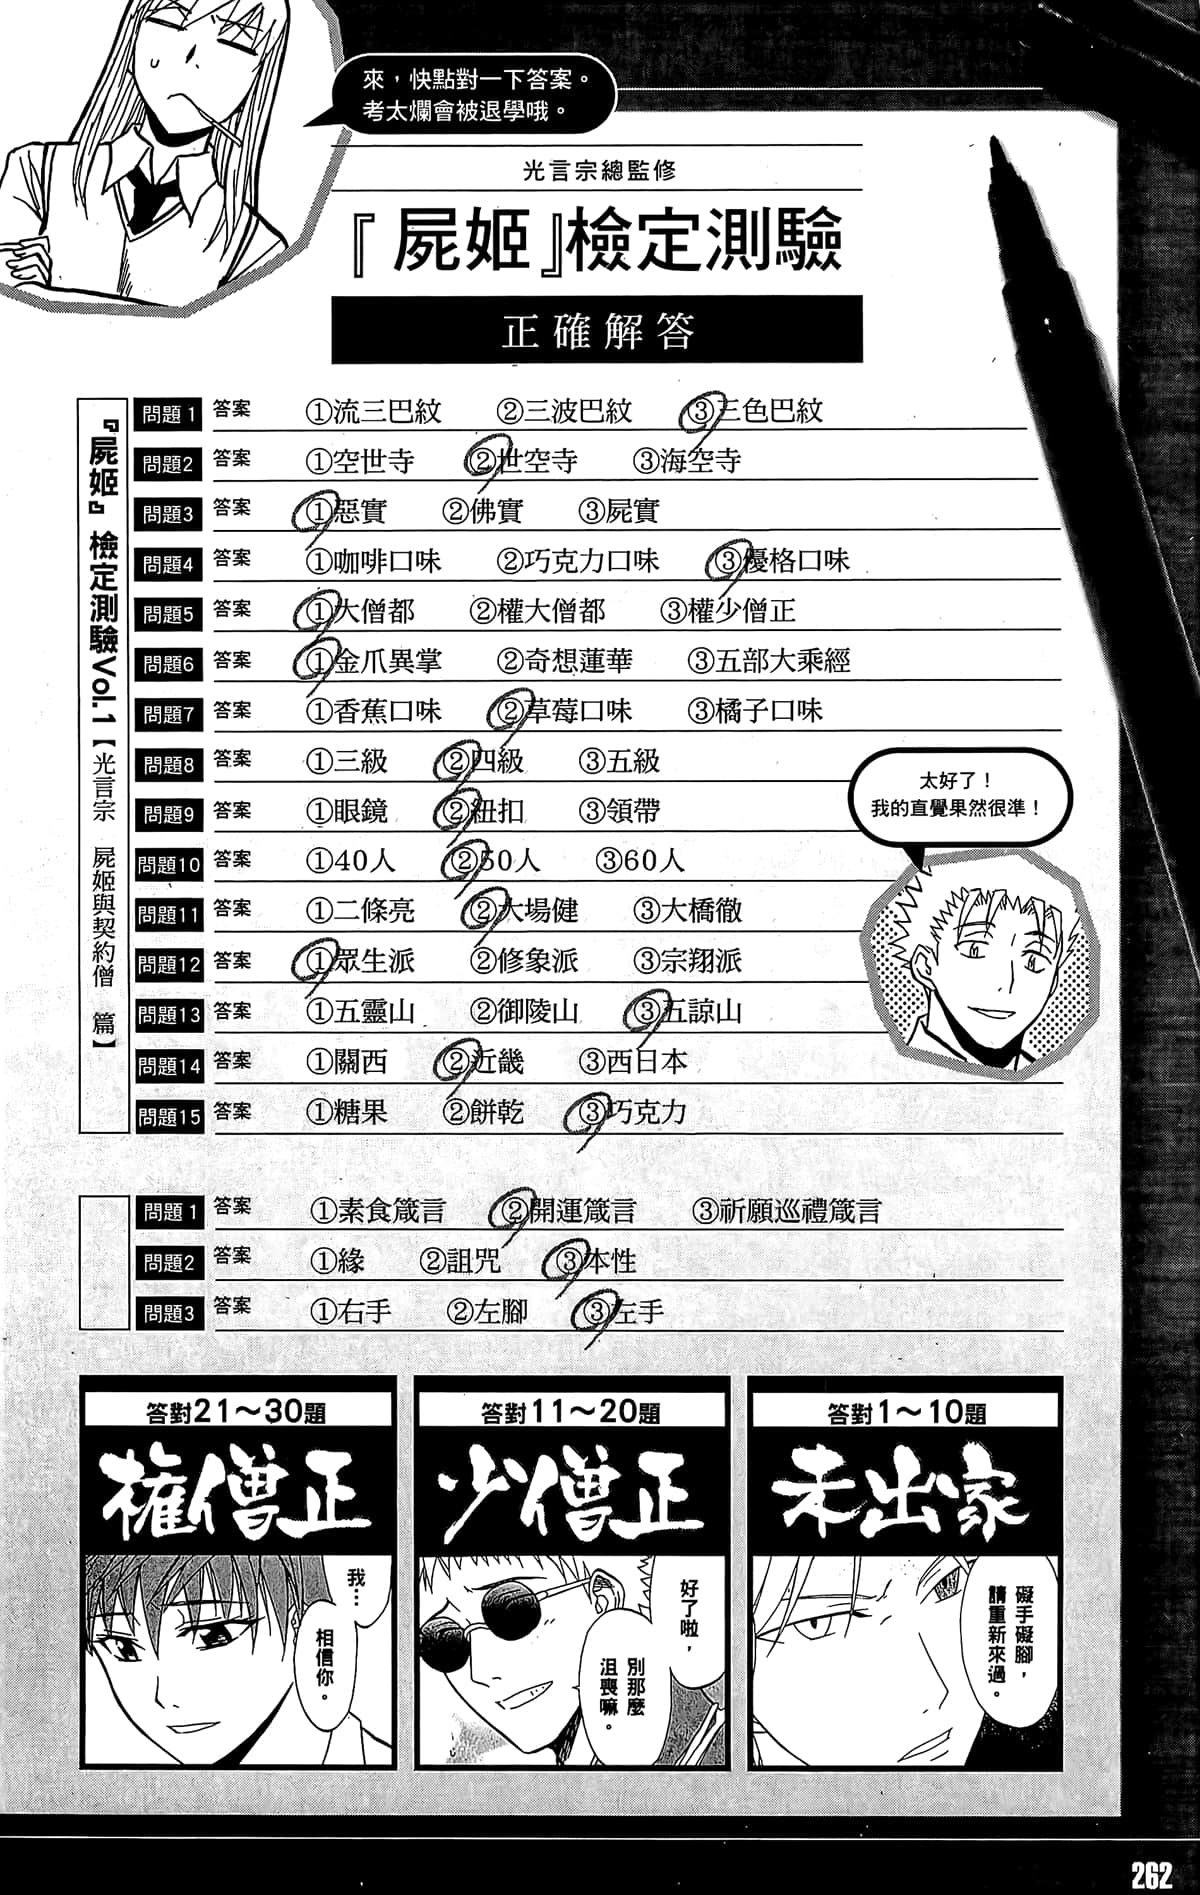 來，快點對一下答案。
考太爛會被退學哦。
光言宗總監修
『屍姬』檢定測驗
正確解答
『屍姬』檢定測驗Vol.1【光言宗 屍姬與契約僧 篇】
問題1 答案 ①流三巴紋 ②三波巴紋 ③三色巴紋
問題2 答案 ①空世寺 ②世空寺 ③海空寺
問題3 答案 ①惡實 ②佛實 ③屍實
問題4 答案 ①咖啡口味 ②巧克力口味 ③優格口味
問題5 答案 ①大僧都 ②權大僧都 ③權少僧正
問題6 答案 ①金爪異掌 ②奇想蓮華 ③五部大乘經
問題7 答案 ①香蕉口味 ②草莓口味 ③橘子口味
問題8 答案 ①三級 ②四級 ③五級
問題9 答案 ①眼鏡 ②鈕扣 ③領帶
問題10 答案 ①40人 ②50人 ③60人
問題11 答案 ①二條亮 ②大場健 ③大橋徹
問題12 答案 ①眾生派 ②修象派 ③宗翔派
問題13 答案 ①五靈山 ②御陵山 ③五諒山
問題14 答案 ①關西 ②近畿 ③西日本
問題15 答案 ①糖果 ②餅乾 ③巧克力
太好了！
我的直覺果然很準！
問題1 答案 ①素食箴言 ②開運箴言 ③祈願巡禮箴言
問題2 答案 ①緣 ②詛咒 ③本性
問題3 答案 ①右手 ②左腳 ③左手
答對21～30題
權僧正
我…
相信你。
答對11～20題
少僧正
好了啦，
別那麼
沮喪嘛。
答對1～10題
未出家
礙手礙腳，
請重新來過。
262